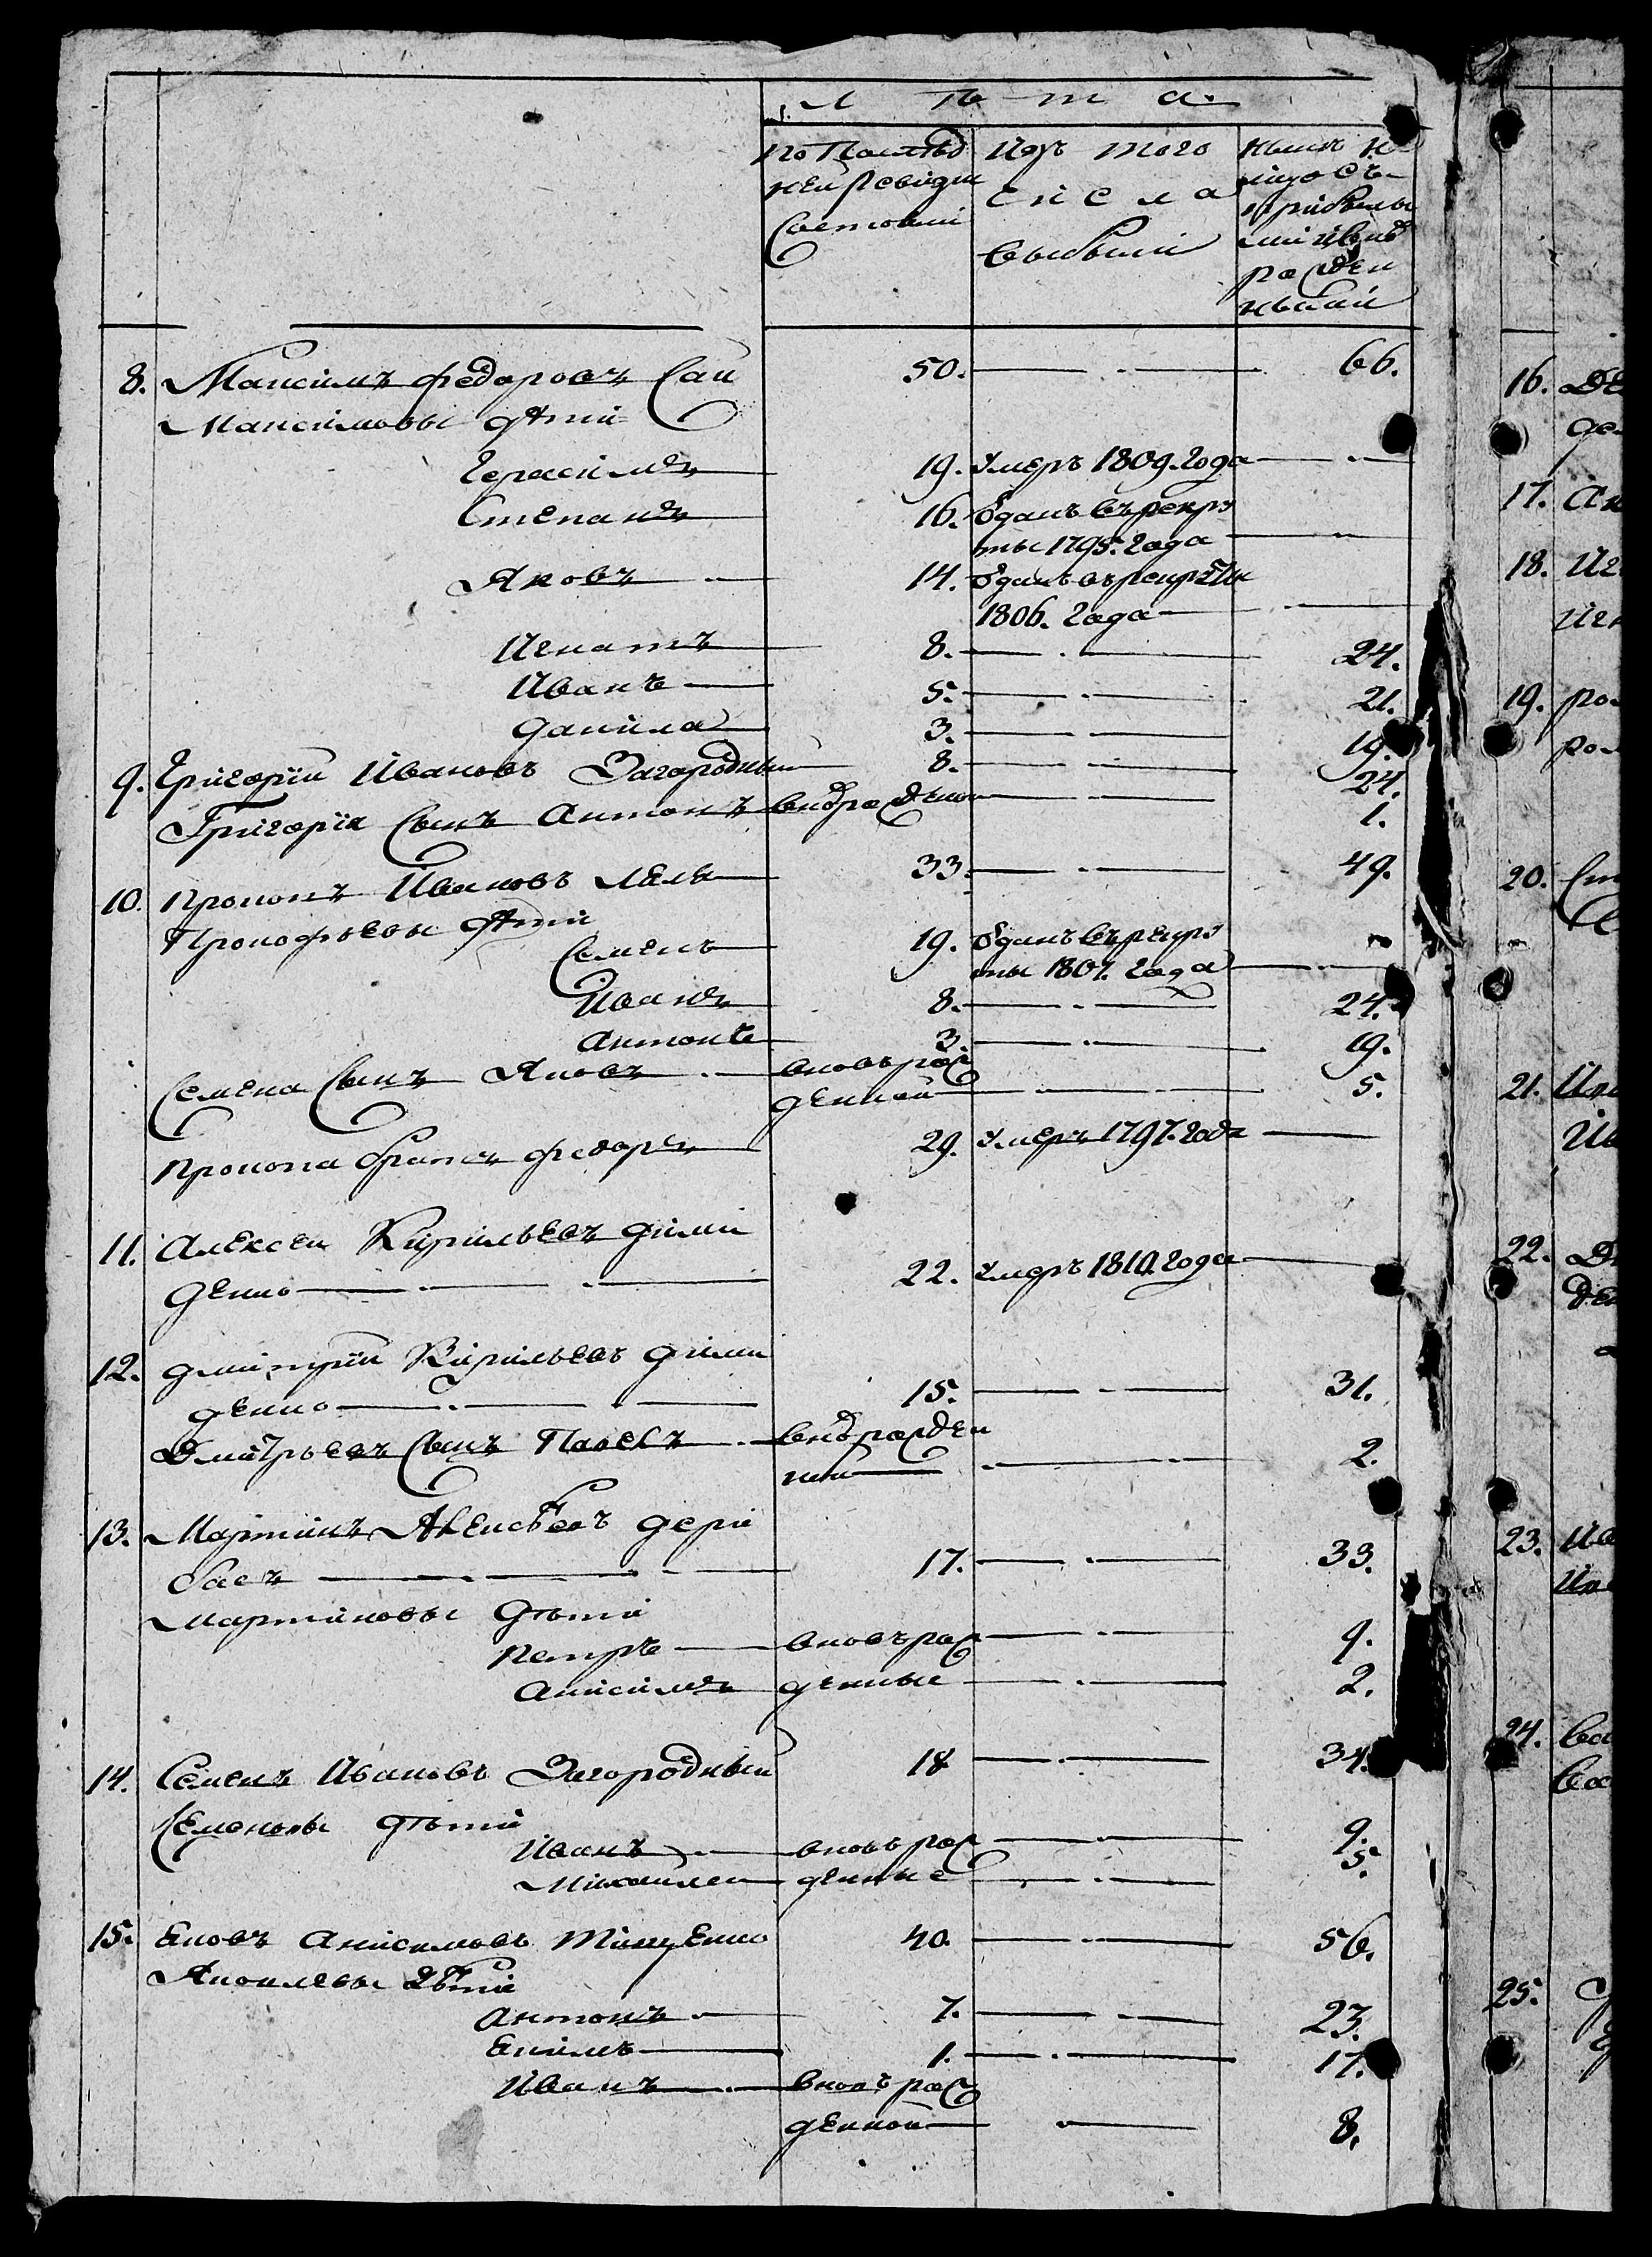 Лѣта.
по последней ревизии состояли
изъ того числа выбыли
ныне на лицо съ прибылыми и вновь рожденными
8. Максимъ Федоровъ Сай 50. 66.
Максимовы дѣти
Герасимъ 19. умеръ 1809. года
Степанъ 16. отданъ въ рекруты 1795. года
Яковъ 14. отданъ въ рекруты 1806. года
Игнатъ 8. 24.
Иванъ 5. 21.
Данила 3. 19.
9. Григорий Ивановъ Загородный 8. 24.
Григория сынъ Антонъ вновь рожденой 1.
10. Прокопъ Ивановъ 33. 49.
Прокофьевы дѣти
Семенъ 19. отданъ въ рекруты 1807. года
Иванъ 8. 24.
Антонъ 3. 19.
Семена сынъ Яковъ вновь рожденной 5.
Прокопа братъ Федоръ 29. умеръ 1797. года
11. Алексей Кирильевъ Дими
денко 22. умеръ 1810. года
12. Дмитрий Кирильевъ Дими
денко 15. 31.
Дмитрьевъ сынъ Павелъ вновь рожденный 2.
13. Мартинъ Алексѣевъ Дери
басъ 17. 33.
Мартиновы дѣти
Петръ вновь рож 9.
Анисимъ денные 2.
14. Семенъ Ивановъ Загородный 18 34.
Семеновы дѣти
Иванъ вновь рож 9.
Михаила денные 5.
15. Яковъ Анисимовъ Тищенко 40. 56.
Яковлевы дѣти
Антонъ 7. 23.
Екимъ 1. 17.
Иванъ вновь рож
денной 8.
16.
17.
18.
19.
20.
21.
22.
23.
24.
25.